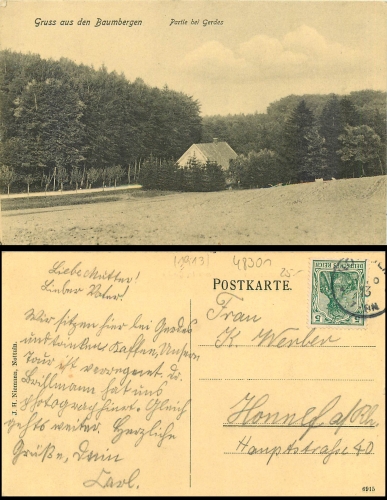 Gruss aus den Baumbergen
Partie bei Gerdes
(1913)
48301
25.-
POSTKARTE.
DEUTSCHES REICH
5
5
Liebe Mutter!
Lieber Vater!
Wir sitzen hier bei Gerdes
und trinken Kaffee, Unsere
Tour ist verregnet. Dr.
hat uns
photographiert. Gleich
gehts weiter. Herzliche
Grüße, Dein
Carl.
Frau
K. Werber
Honnef a/Rh.
Hauptstrasse 40
J. H. Niemann, Nottuln.
6915